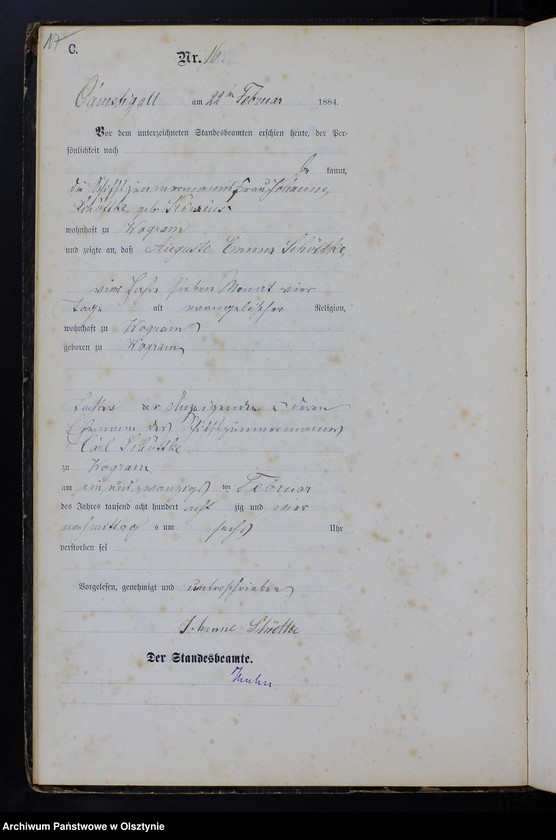 17
C.
Nr. 16
am 22 ten Februar 1884.
Vor dem unterzeichneten Standesbeamten erschien heute, der Per-
sönlichkeit nach
be kannt,
die Schiffszimmermannsfrau Johanne
Schöttke geb.
wohnhaft zu Wogram
und zeigte an, daß Auguste Emma Schöttke
vier Jahre sieben Monat vier
Tage alt evangelischer Religion,
wohnhaft zu Wogram
geboren zu Wogram
Tochter der Anzeigenden u deren
Ehemann des Schiffszimmermanns
Carl Schöttke
zu Wogram
am ein und zwanzigsten Februar
des Jahres tausend acht hundert acht zig und vier
nachmittags um sechs Uhr
verstorben sei
Vorgelesen, genehmigt und unterschrieben
Johanne Schöttke
Der Standesbeamte.
Archiwum Państwowe w Olsztynie